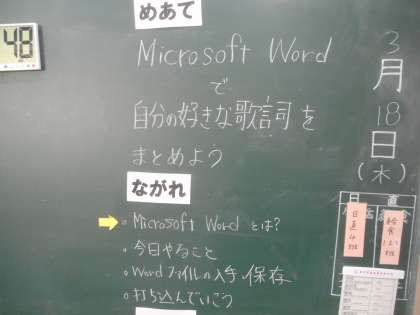 48
めあて
Microsoft Word
で
自分の好きな歌詞を
まとめよう
ながれ
Microsoft Wordとは?
今日やること
Wordファイルの入手・保存
打ち込んでいこう
3
月
18
日
(木)
日
直
日直4班
給食